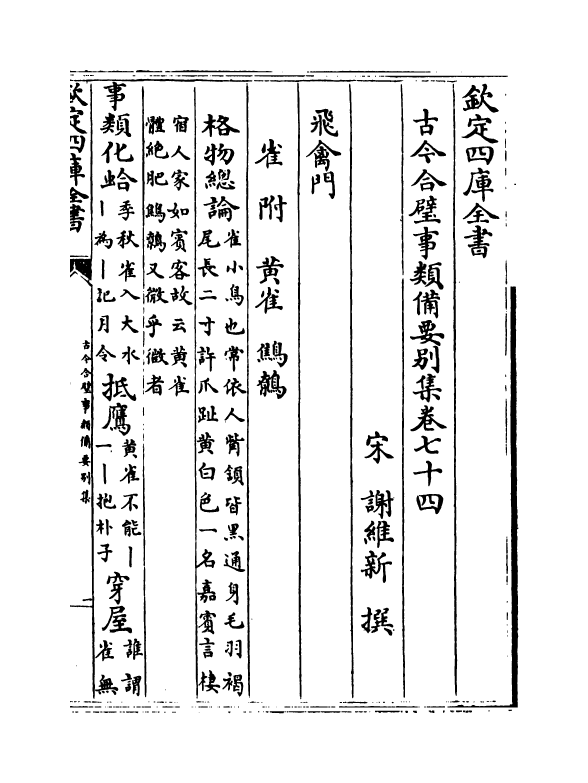 欽定四庫全書
古今合璧事類備要別集卷七十四
宋 謝維新 撰
飛禽門
雀 附 黃雀 鷦鷯
格物總論雀小鳥也常依人觜頷皆黑通身毛羽褐
尾長二寸許爪趾黃白色一名嘉賓言棲
宿人家如賓客故云黃雀
體絶肥鷦鷯又微乎微者
事類化蛤季秋雀入大水
丨為丨記月令
抵鷹黃雀不能丨
一丨抱朴子
穿屋誰謂
雀無
欽定四庫全書
古今合璧事類備要別集
一